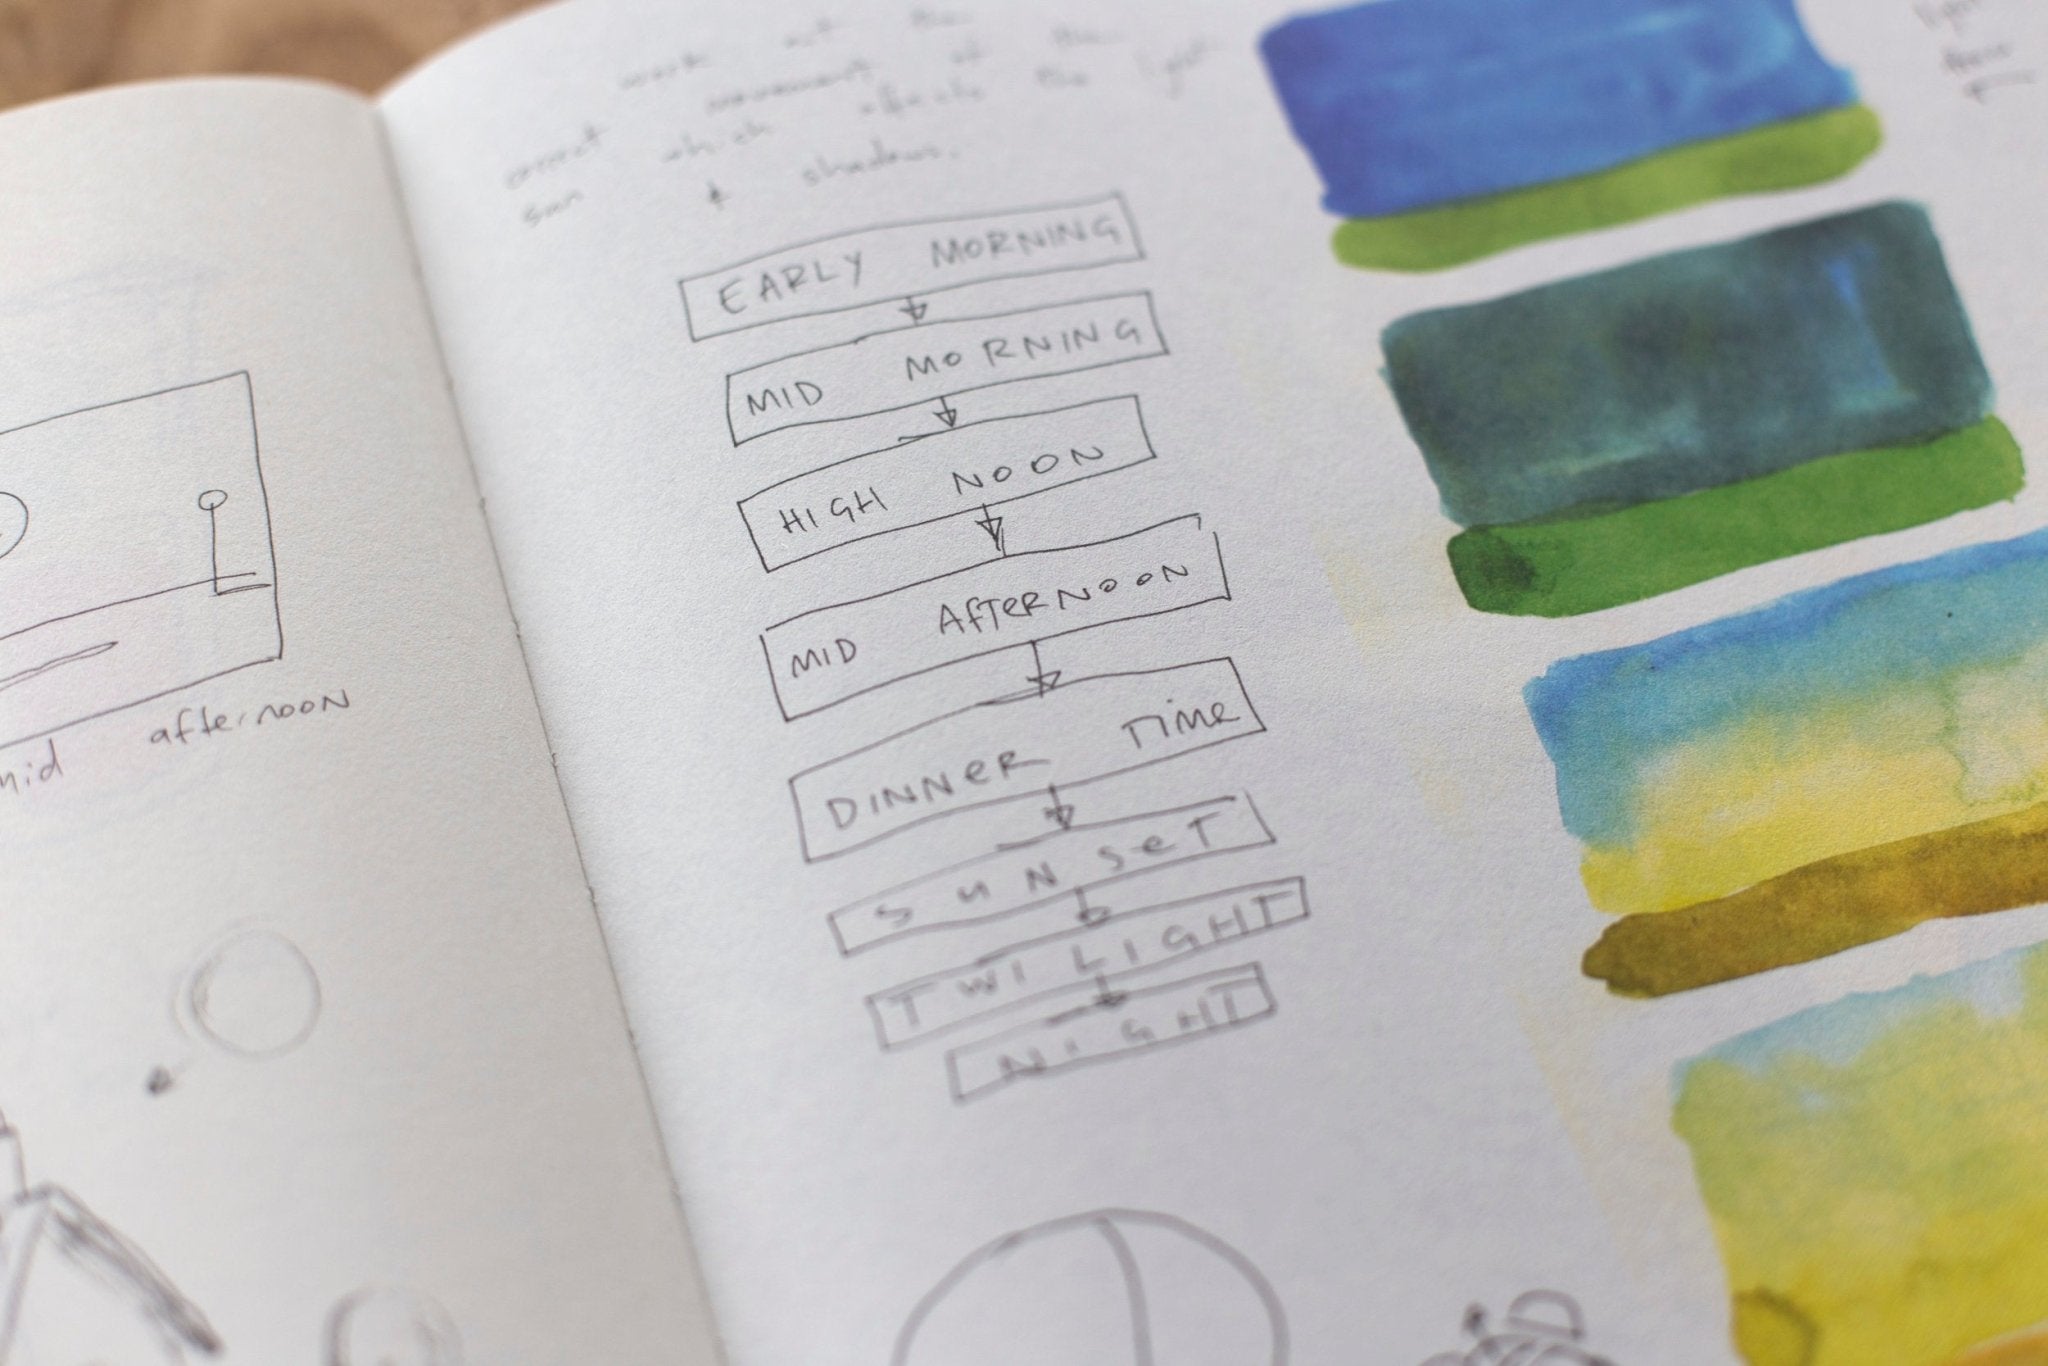 mid afternoon
work out the
correct movement of the
sun which affects the light
& shadows.
EARLY MORNING
MID MORNING
HIGH NOON
MID AFTERNOON
DINNER TIME
SUNSET
TWILIGHT
NIGHT